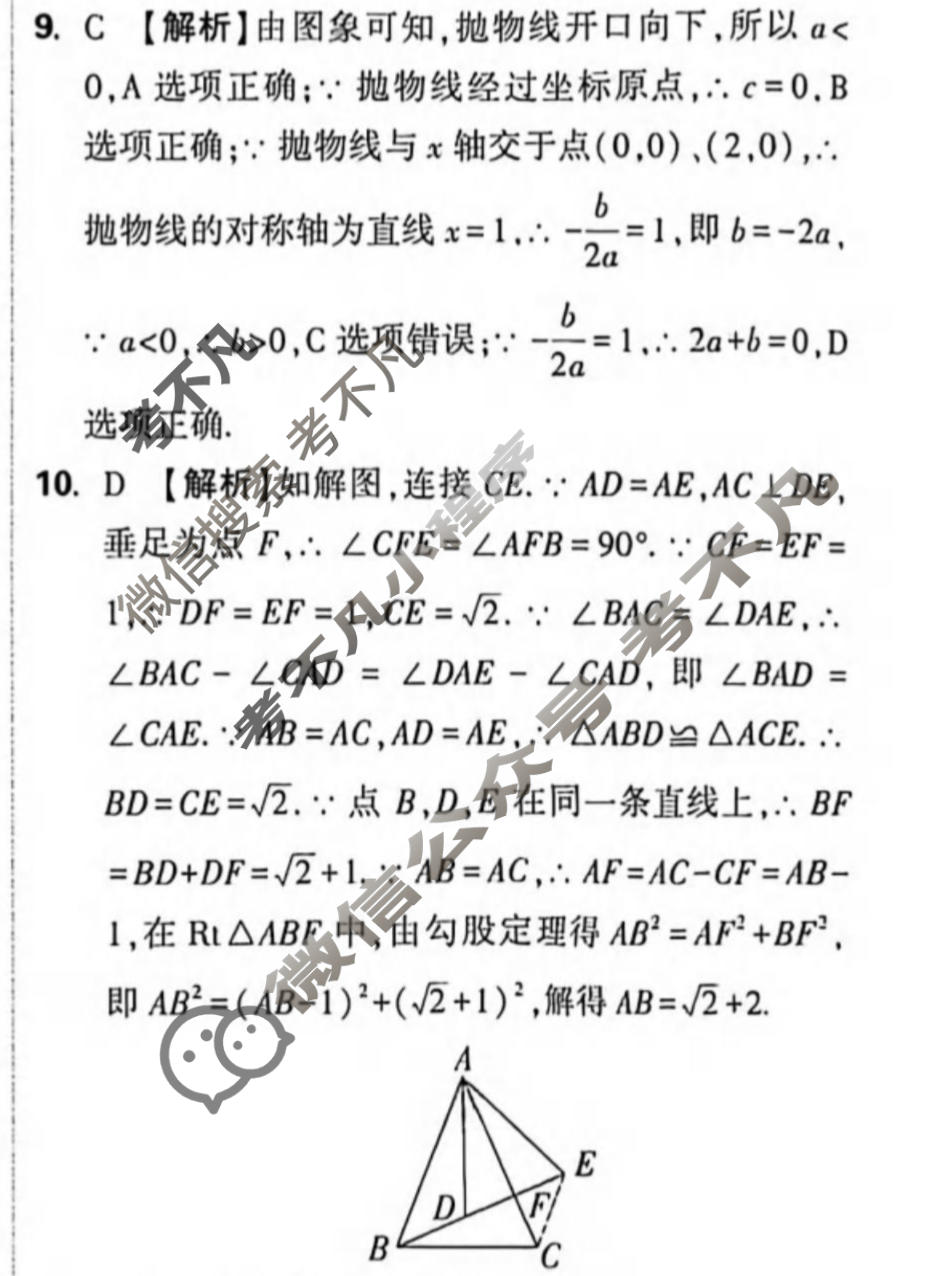 9. C 【解析】由图象可知,抛物线开口向下,所以 a<
0,A 选项正确;∵ 抛物线经过坐标原点,∴ c=0,B
选项正确;∵ 抛物线与 x 轴交于点(0,0)、(2,0),∴
抛物线的对称轴为直线 x=1,∴ -b/2a=1,即 b=-2a,
∵ a<0,∴ b>0,C 选项错误;∵ -b/2a=1,∴ 2a+b=0,D
选项正确.
10. D 【解析】如解图,连接 CE. ∵ AD=AE,AC⊥DE,
垂足为点 F,∴ ∠CFE=∠AFB=90°. ∵ CF=EF=
1,∴ DF=EF=1,CE=√2. ∵ ∠BAC=∠DAE,∴
∠BAC-∠CAD=∠DAE-∠CAD,即 ∠BAD=
∠CAE. ∵ AB=AC,AD=AE,∴ △ABD≌△ACE. ∴
BD=CE=√2. ∵ 点 B,D,E 在同一条直线上,∴ BF
=BD+DF=√2+1. ∵ AB=AC,∴ AF=AC-CF=AB-
1,在 Rt△ABF 中,由勾股定理得 AB²=AF²+BF²,
即 AB²=(AB-1)²+(√2+1)²,解得 AB=√2+2.
A
E
D
F
B
C
考不凡
微信搜索 考不凡
考不凡小程序
微信公众号 考不凡